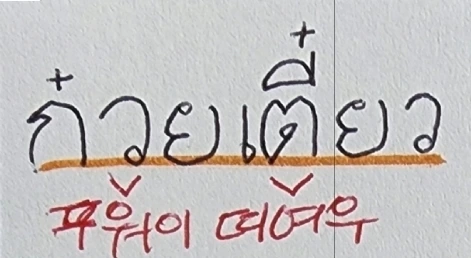 ก๋วยเตี๋ยว
꾸워이 띠여우